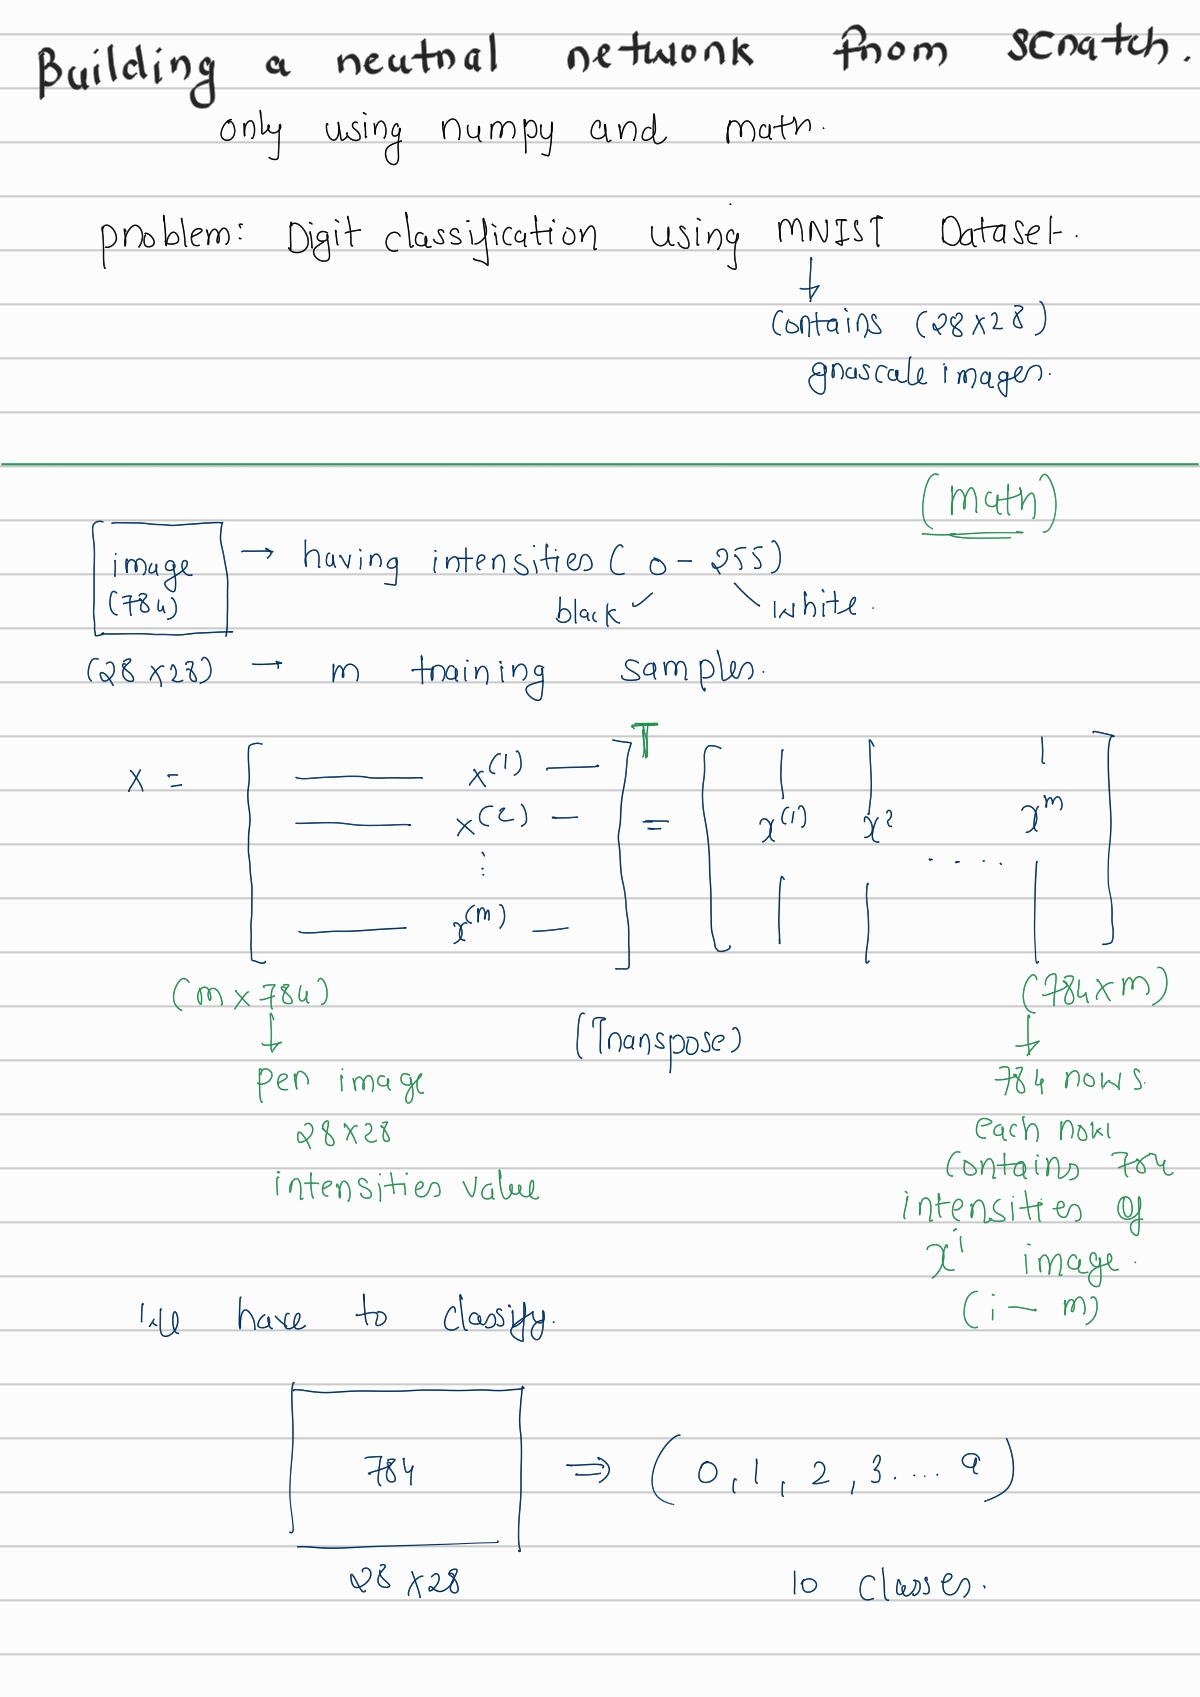 Building a neutral network from scratch.
only using numpy and math.
problem: Digit classification using MNIST Dataset.
↓
Contains (28×28)
grascale images.
(math)
image → having intensities ( 0 - 255)
(784) black white.
(28×28) → m training samples.
X = [ — x^(1) — ]^T = [ | | | ]
— x^(2) — x^(1) x^2 .... x^m
⋮
— x^(m) — | | |
(m×784) (784×m)
↓ (Transpose) ↓
per image 784 rows.
28×28 each row
intensities value contains 784
intensities of
x^i image.
(i — m)
We have to classify.
784 ⇒ (0,1,2,3.... 9)
28×28 10 classes.